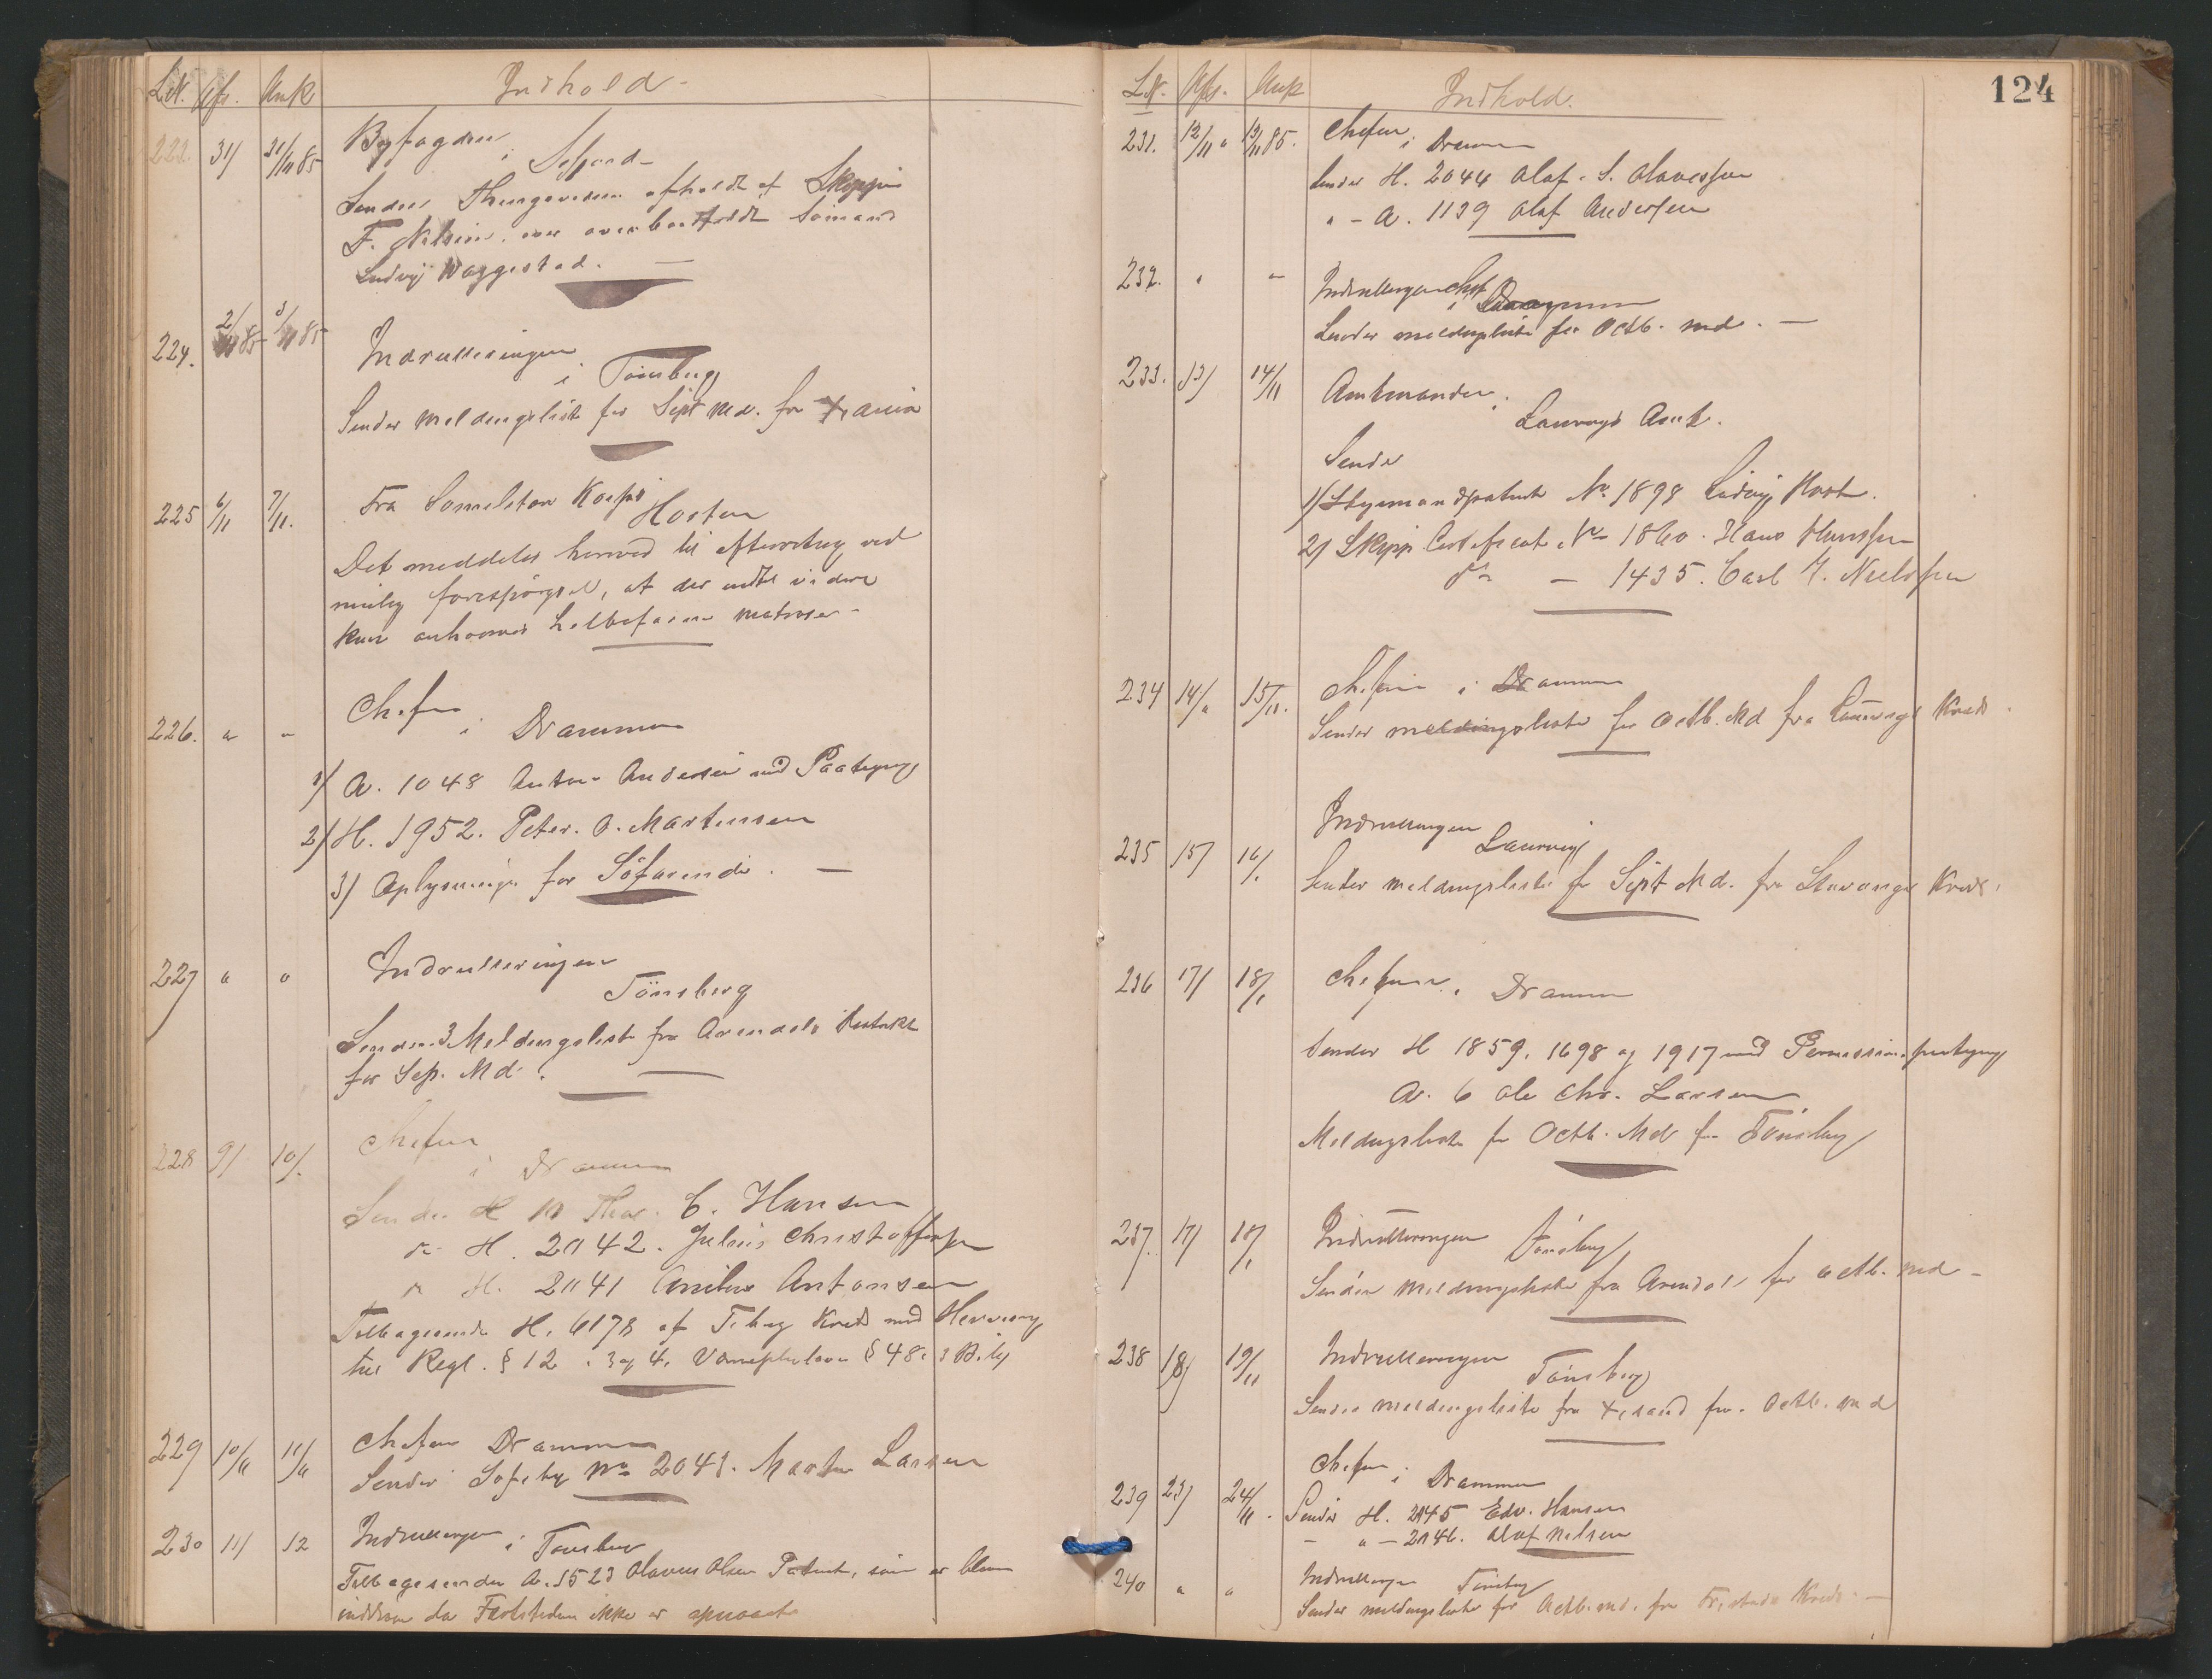 LN. Afs. Ank Indhold -
223. 31/ 31/10 85 Byfogden
i
Sender afholdt af Skipper
F. Nilsen. Sømand
Ludvig Waggestad. —
224. 2/11 85 3/11 85 Indrulleringen
i Tönsberg
Sender Meldingsliste for Sept Md. fra X,ania
225 6/11 7/11. Fra Korps
Horten
Det meddeles herved til efterretning ved
mulig forespörgsel, at der indtil videre
kun matroser -
226. " " Chefen
i Drammen
1) A. 1048 Anton Andersen med Paategn
2) H. 1952. Peter. O. Martinsen
3) Oplysninger for Söfarende . —
227 " " Indrulleringen
Tönsberg
Sender 3 Meldingsliste fra Arendals Distrikt
for Sep. Md. —
228 9/ 10/. Chefen
i Drammen
Sender H C. Hansen
H. 2042. Julius Christoffersen
H. 2041 Antonsen
Tilbagesender H. 6178 af Kreds med Henvisning
til Regl. § 12 . 3 og 4. Værnepligtsloven § 48.
229 10/11 11/11 Chefen Drammen
Sender No 2043. Martin Larsen
230 11/ 12 Indrulleringen i Tönsberg
Tilbagesender A. 1523 Olaves Olsen Patent, som er bleven
inddraget da ikke er
124
LN. Afs. Ank Indhold.
231. 12/11 " 13/11 85. Chefen i Drammen
Sender H. 2044 Olaf. S. Olavessen
" - A. 1139 Olaf Andersen
232. " " Indrulleringschef
i Drammen
Sender meldingsliste for Octb. md. —
233. 13/ 14/11 Amtmanden i
Laurvigs Amt.
Sender
1) Styrmandspatent No 1898 Ludvig Horst.
2) Skipp Certificat No 1860. Hans Hanssen
do — 1435. Carl J. Nielsen
234 14/" 15/11. Chefen i Drammen
Sender meldingsliste for Octb. Md fra Laurvigs Kreds.
235 15/ 16/. Indrulleringen
Laurvig
Sender meldingsliste for Sept Md. fra Stavanger Kreds.
236 17/ 18/. Chefen i Drammen
Sender H 1859, 1698 og 1917 med Permissionspaategn
A. 6 Ole Chr. Larsen
Meldingsliste for Octb. Md fra Tönsberg
237. 17/ 18/. Indrulleringen Tönsberg
Sender meldingsliste fra Arendal for Octb. Md -
238 18/ 19/11 Indrulleringen
Tönsberg
Sender meldingsliste fra X,sand for Octb. md
239 23/ 24/11. Chefen i Drammen
Sender H. 2045 Edv. Hansen
- " - 2046. Olaf Nilsen
240 " " Indrulleringen Tönsberg
Sender meldingsliste for Octb. md. fra Fr,stads Kreds —